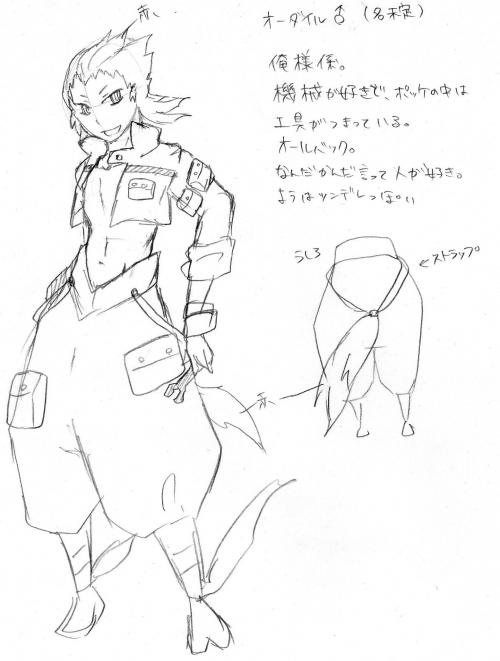 赤、
オーダイル♂ (名未定)
俺様係。
機械が好きで、ポッケの中は
工具がつまっている。
オールバック。
なんだかんだ言って人が好き。
ようはツンデレっぽい
うしろ
←ストラップ
赤、